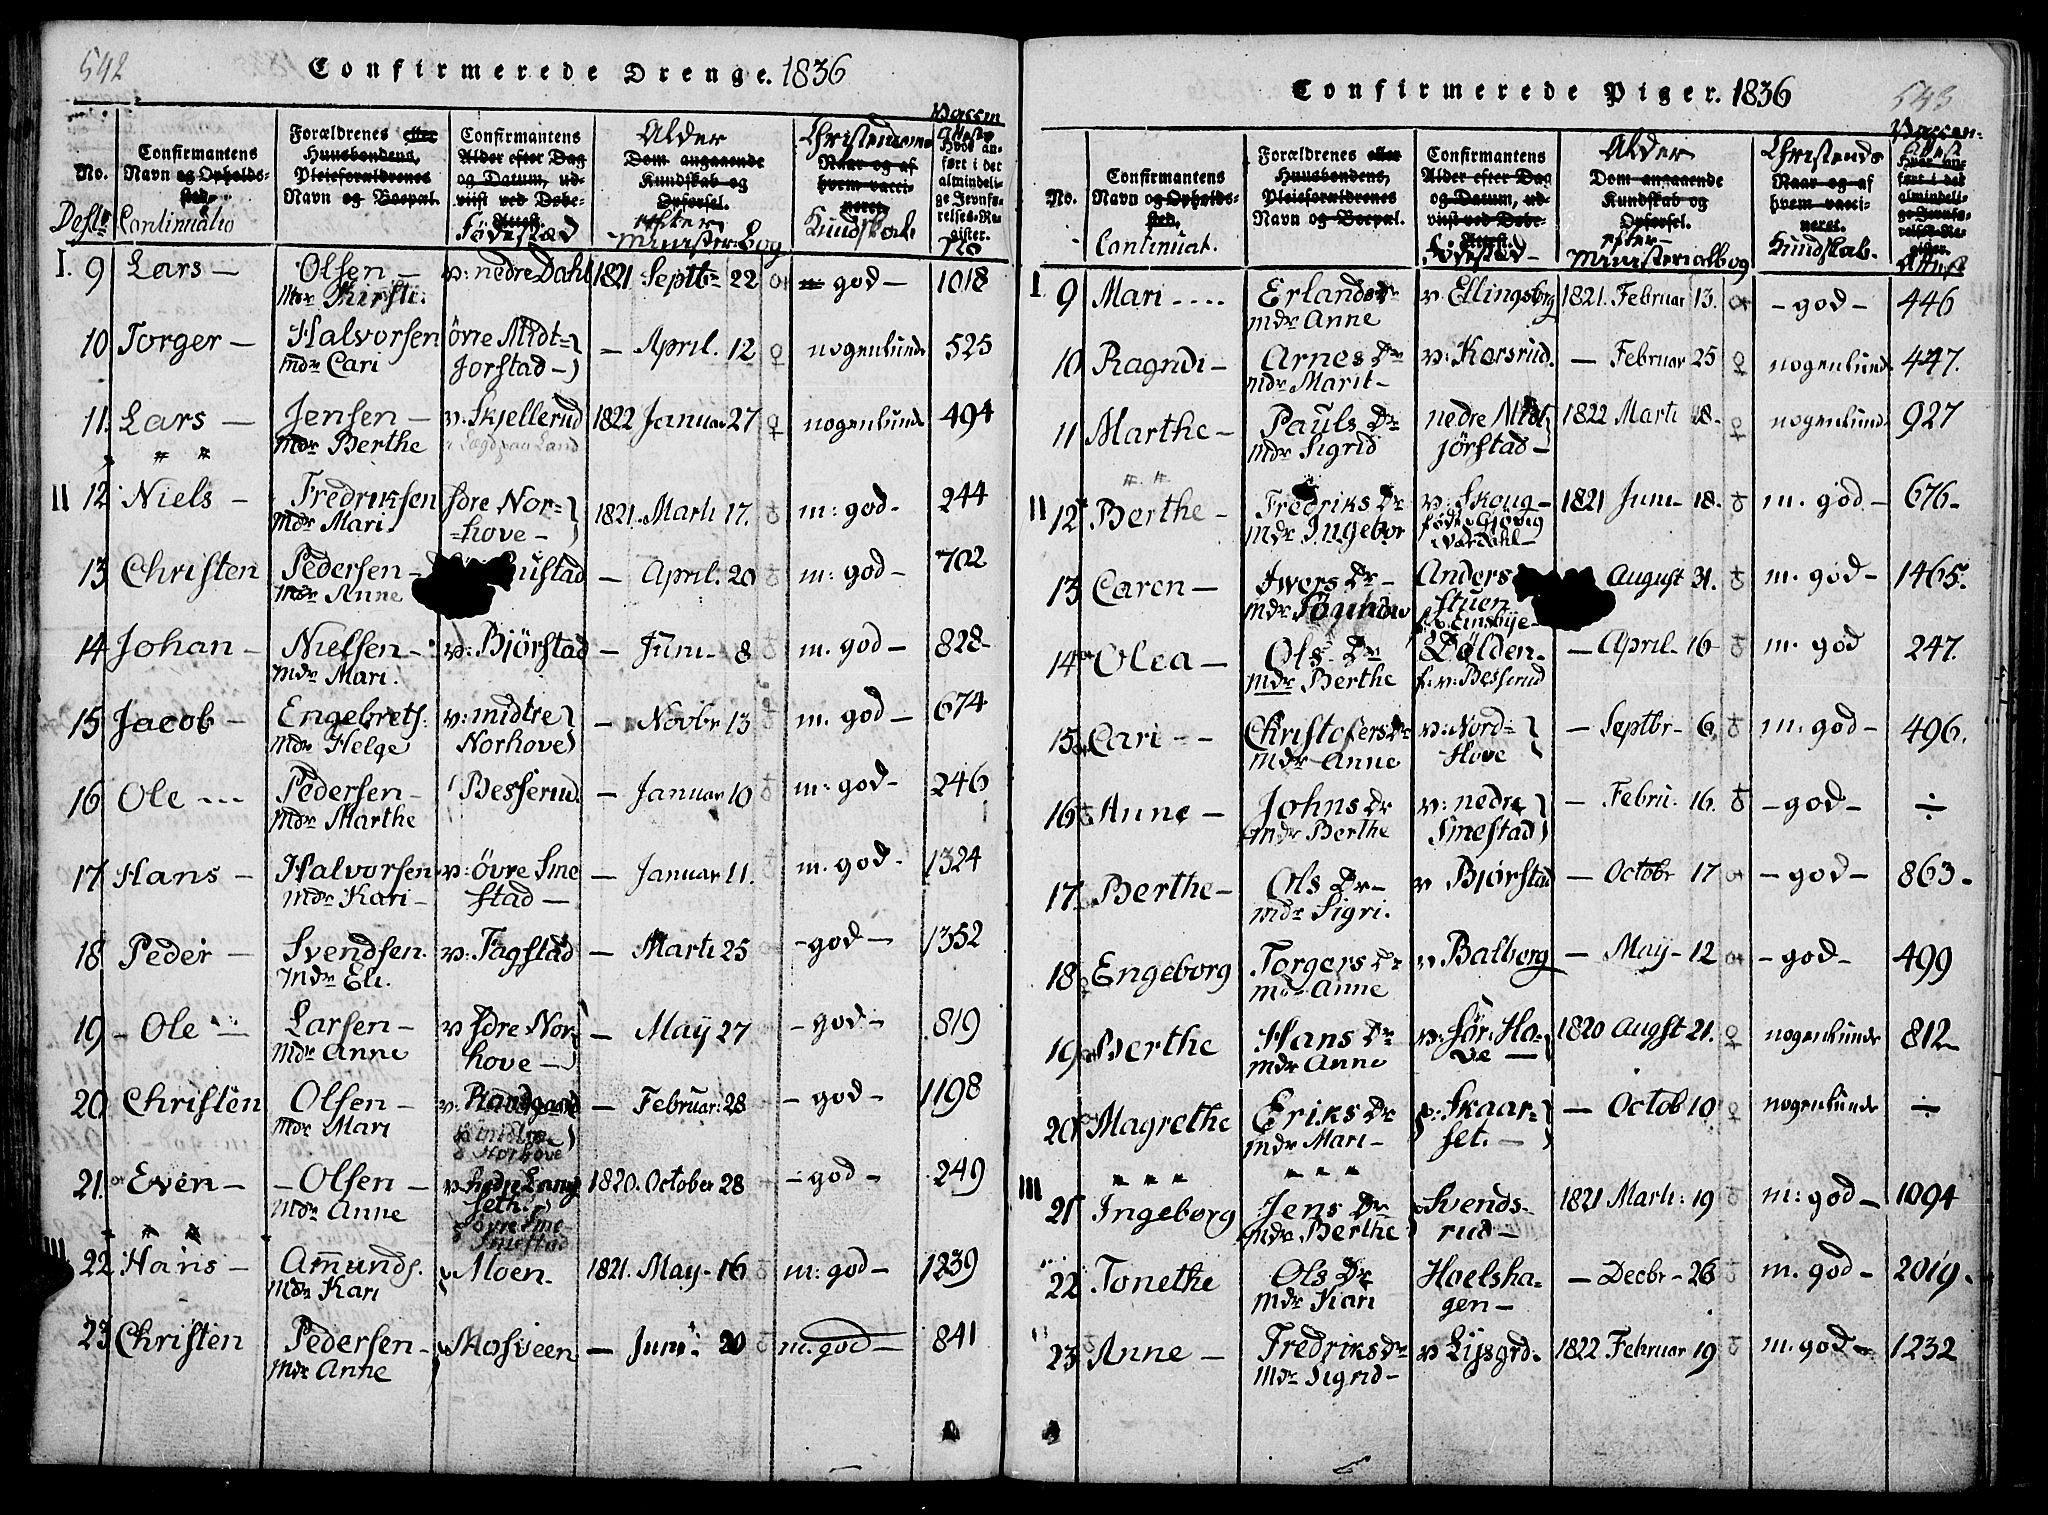 542
Confirmerede Drenge. 1836
No. Confirmantens Navn og Opholdssted. Forældrenes eller Huusbondens, Pleieforældrenes Navn og Boepæl. Confirmantens Alder efter Dag og Datum, udviist ved Døbe-Attest. Dom angaaende Kundskab og Opførsel. Naar og af hvem vaccineret. Hvor anført i det almindelige Jevnførelses-Register.
Continuatio Fødestæd Alder efter Minister: Bog Christendoms Kundskab No
I. 9 Lars — Olsen — v: nedre Dahl 1821 Septb: 22 god — 1018
Mdr Kirsti.
10 Torger — Halvorsen øvre Midt= — April. 12 nogenlunde 525
Mdr Cari Jorstad —
11. Lars — Jensen — v: Skjellerud 1822 Januar 27 nogenlunde 494
Mdr Berthe
II 12 Niels — Fredriksen sdre Nor= 1821. Marti 17. m: god — 244
Mdr Mari. =hove —
13 Christen Pedersen — ustad — April. 20 m: god — 702
Mdr Anne
14 Johan — Nielsen — v: Bjørstad — Juni — 8 m. god — 828
Mdr Mari.
15 Jacob — Engebrets. v: midtre — Novbr 13 m. god — 674
Mdr Helge Norhove
16 Ole --- Pedersen — Besserud. — Januar 10 m: god — 246
Mdr Marthe
17 Hans — Halvorsen v: øvre Sme — Januar 11. m. god — 1324
Mdr Kari — stad —
18 Peder — Svendsen. v: Fagstad — Marti 25 — god — 1352
Mdr Eli.
19 — Ole — Larsen — v sdre Nor — May 27 — god — 819
Mdr Anne hove —
20 Christen Olsen — v: — Februar: 28 — god — 1198
Mdr Mari Norhove
21. Even — — Olsen — v: Lang 1820. October 28 — god — 249
Mdr Anne seth.
øvre Sme
Smestad
III 22 Hans — Amunds. Moen. 1821. May — 16 m: god — 1239
Mdr Kari
23 Christen Pedersen — Mosveen — Juni 20 m. god — 841
Mdr Anne
543
Confirmerede Piger. 1836
No. Confirmantens Navn og Opholdssted. Forældrenes eller Huusbondens, Pleieforældrenes Navn og Boepæl. Confirmantens Alder efter Dag og Datum, udviist ved Døbe-Attest. Dom angaaende Kundskab og Opførsel. Naar og af hvem vaccineret. Hvor anført i det almindelige Jevnførelses-Register.
Continuat. Fødested Alder efter Ministerialbog Christends Kundskab. Attest
I 9 Mari ---- Erlands Dr v. Ellingsberg 1821. Februar 13. — god — 446
Mdr Anne
10 Ragndi — Arnes Dr v: Korsrud. — Februar 25 nogenlund. 447.
Mdr Marit —
11 Marthe — Pauls Dr nedre Midt 1822 Marti 18. nogenlund. 927
Mdr Sigrid jørstad —
II 12 Berthe — Fredriks Dr v: Skoug — 1821 Juni — 18. m. god — 676
Mdr Ingebor født Gjøvig
i Vardahl —
13 Caren — Iwers Dr — Anders August 31. m. god — 1465.
Mdr stuen
Einsbye —
14 Olea — Ols Dr Dølden. — April — 16 m. god 247.
Mdr Berthe f. v: Besserud
15 Cari — — Christofers Dr v: Nord= — Septbr — 6, m: god — 496.
Mdr Anne Hove
16 Anne — Johns Dr v: nedre — Febru: 16. — god — ÷
Mdr Berthe Smestad
17 Berthe — Ols Dr — v Bjørstad — Octobr 17 — god — 863 —
Mdr Sigri.
18 Engeborg Torgers Dr v Balberg — May — 12 — god — 499
Mdr Anne
19 Berthe Hans Dr v: sør: Ho- 1820 Augst 21. nogenlunde 812
Mdr Anne ve —
20 Magrethe Eriks Dr v: Skaar= — Octob 10 nogenlunde ÷
Mdr Mari — set. —
III 21 Ingeborg Jens Dr Svends- 1821 Marti: 19 m: god — 1094
Mdr Berthe rud —
22 Tonethe Ols Dr Hoelsha- — Decbr — 26 m. god — 2019.
Mdr Kari gen —
23 Anne — Fredriks Dr v Lysgrd. 1822 Februar 19 m. god — 1232
Mdr Sigrid —